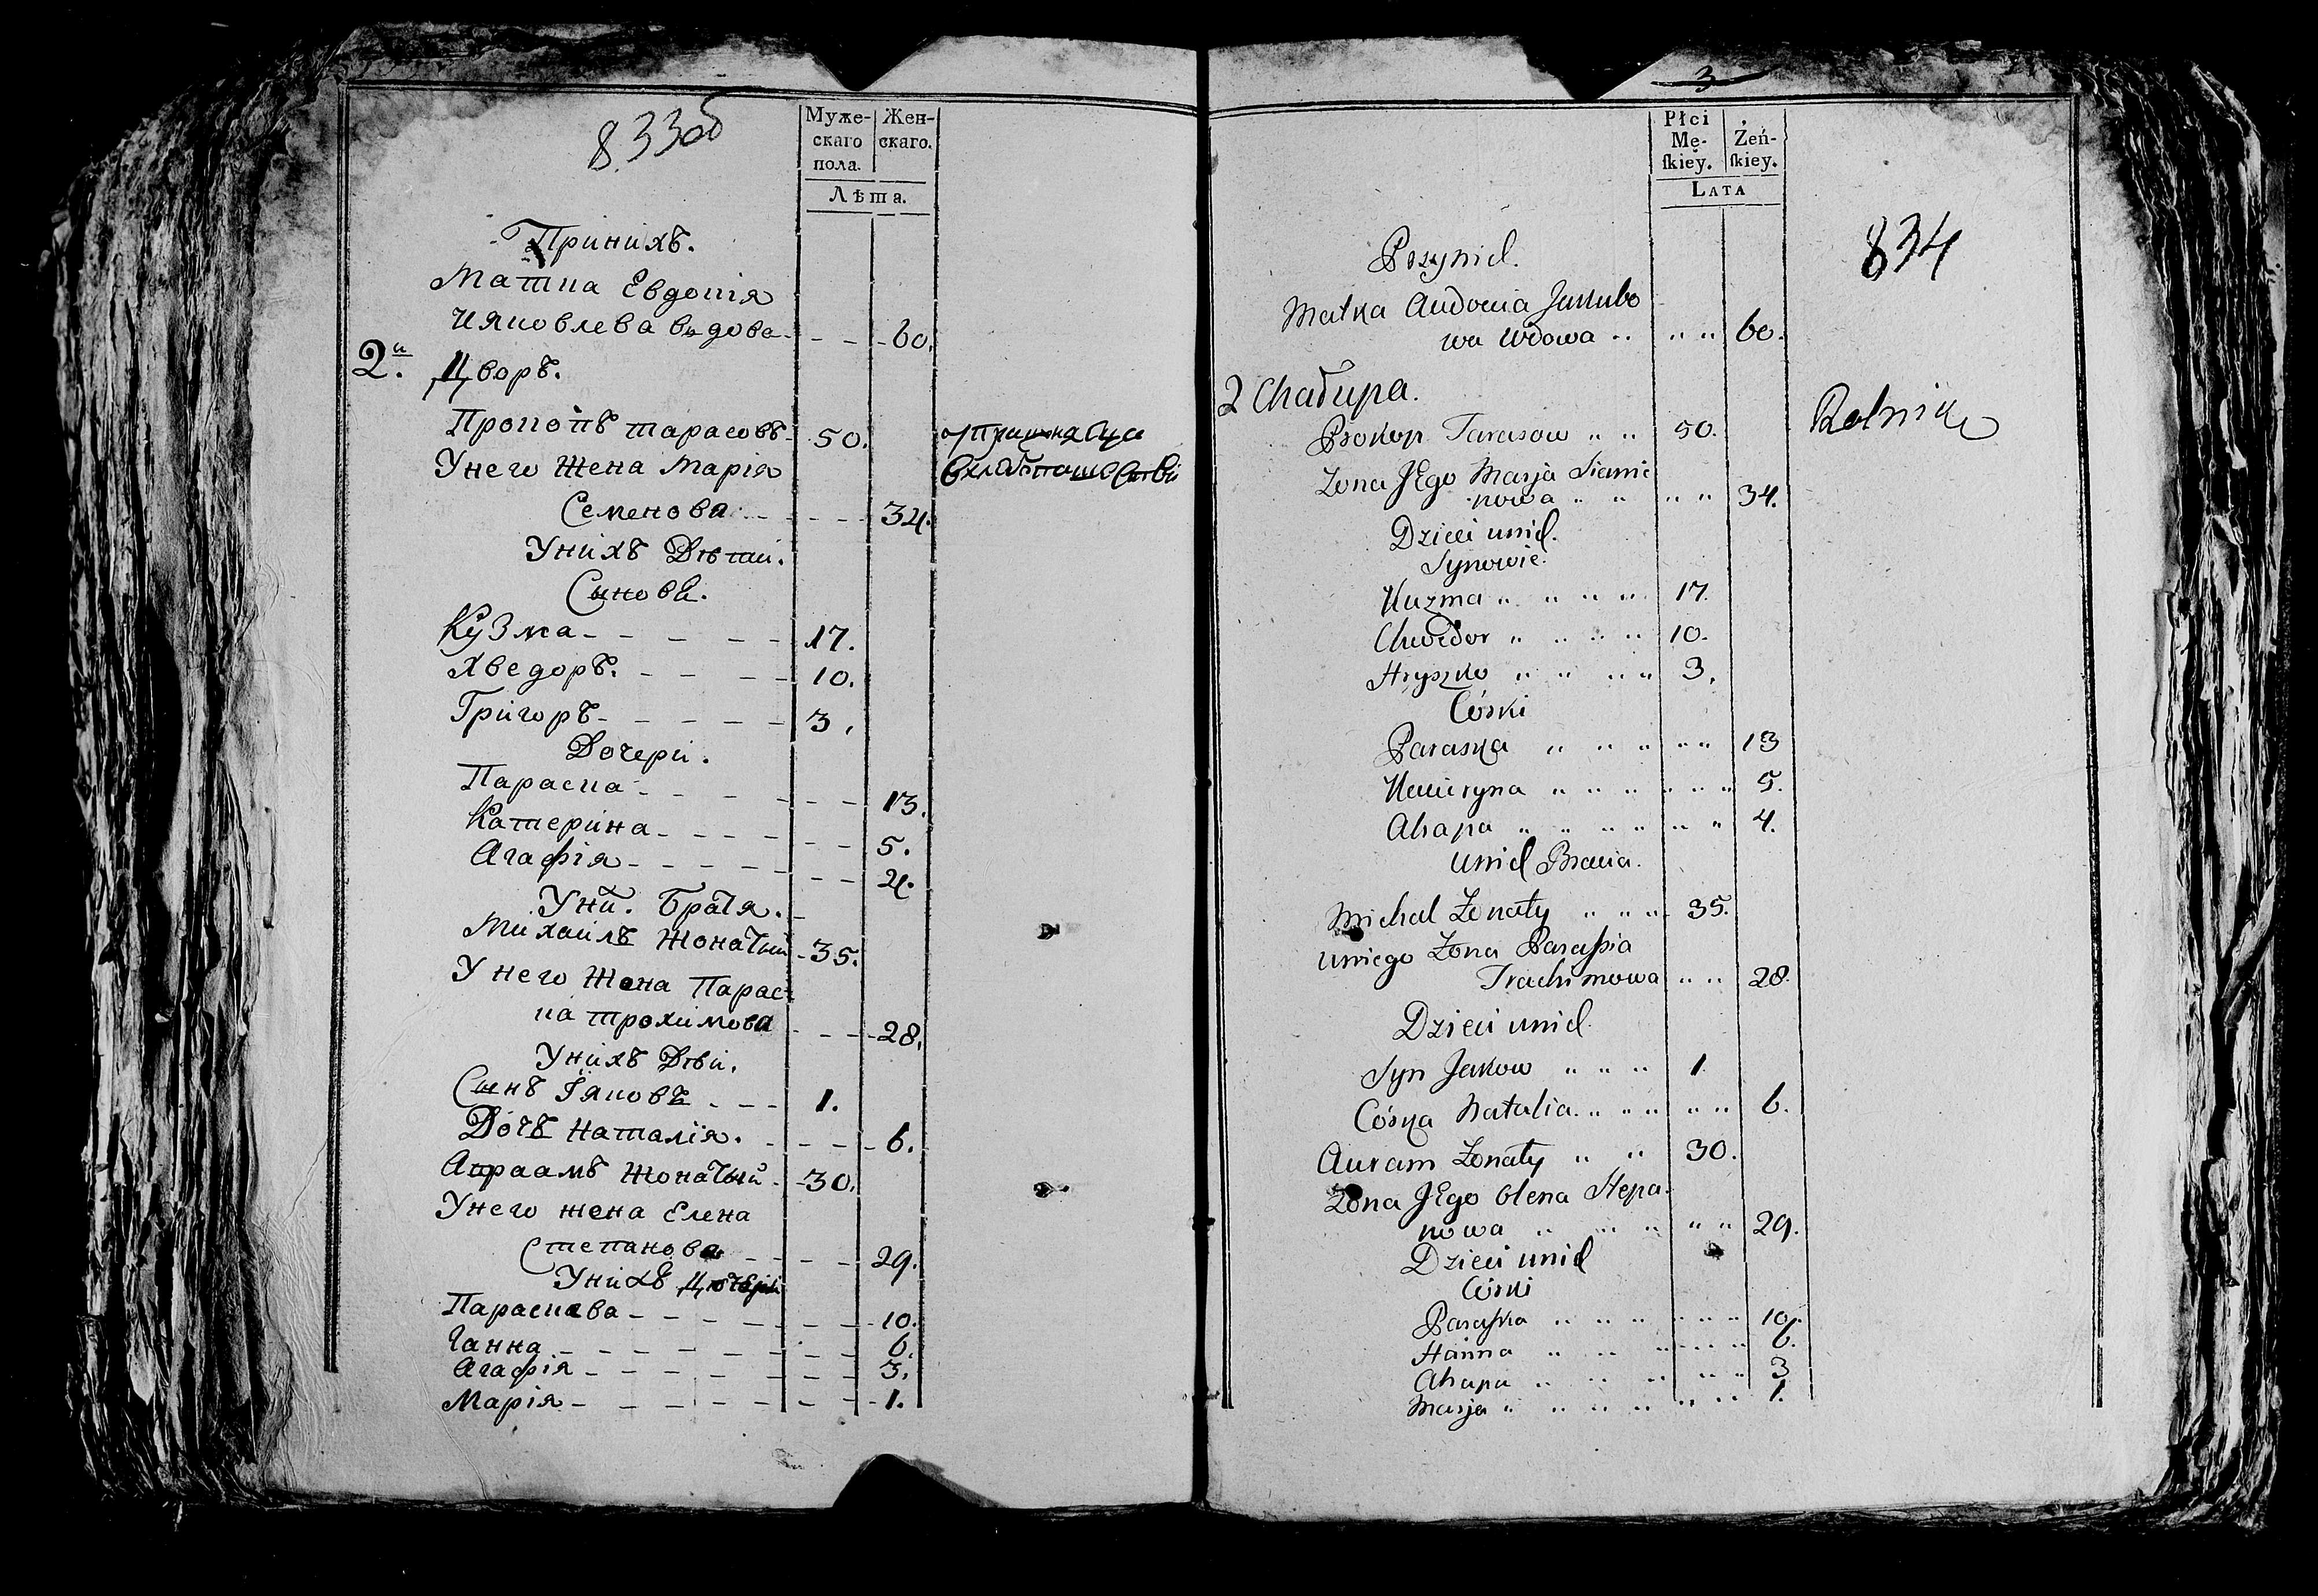 833об
Муже-
скаго
пола.
Жен-
скаго.
Лѣта.
Принихъ.
Матка Евдокія
Ияковлева вдова 60.
2й. Дворъ.
Прокопъ Тарасовъ 50.
Унего Жена Марія
Семенова 34.
Унихъ Дѣти.
Синови.
Кузма 17.
Хведоръ. 10.
Григоръ 3.
Дочери.
Параска 13.
Катерина 5.
Агафія 4.
Уни. Братя.
Михаилъ Жонатый 35.
Унего Жона Парас
ка Трохимова 28.
Унихъ Дѣти.
Сынъ Їяковъ 1.
Дочъ Наталїя. 6.
Авраамъ Жонатый 30.
Унего жена Елена
Степанова 29.
Унихъ Дочери
Параскева 10.
Ганна 6.
Агафія 3.
Марія 1.
3
Płci
Mę-
ſkiey.
Żeń-
ſkiey.
LATA
834
Przynich.
Matka Audocia Jakubo
wa Wdowa .. 60.
2 Chałupa.
Prokop Tarasow 50. Rolnik
Zona JEgo Marja Siemie
nowa 34.
Dzieci unich.
Synowie.
Kuzma 17.
Chwedor 10.
Hryszko 3.
Córki
Paraska 13
Kacieryna 5.
Ahapa 4.
unich Bracia.
Michał Żonaty 35.
uniego Żona Paraſka
Trachimowa 28.
Dzieci unich.
Syn Jakow 1
Córka Natalia 6.
Auram Żonaty 30.
Zona JEgo Olena Stepa-
nowa 29.
Dzieci unich
Córki
Paraſka 10.
Hanna 6.
Ahapa 3
Marja 1.